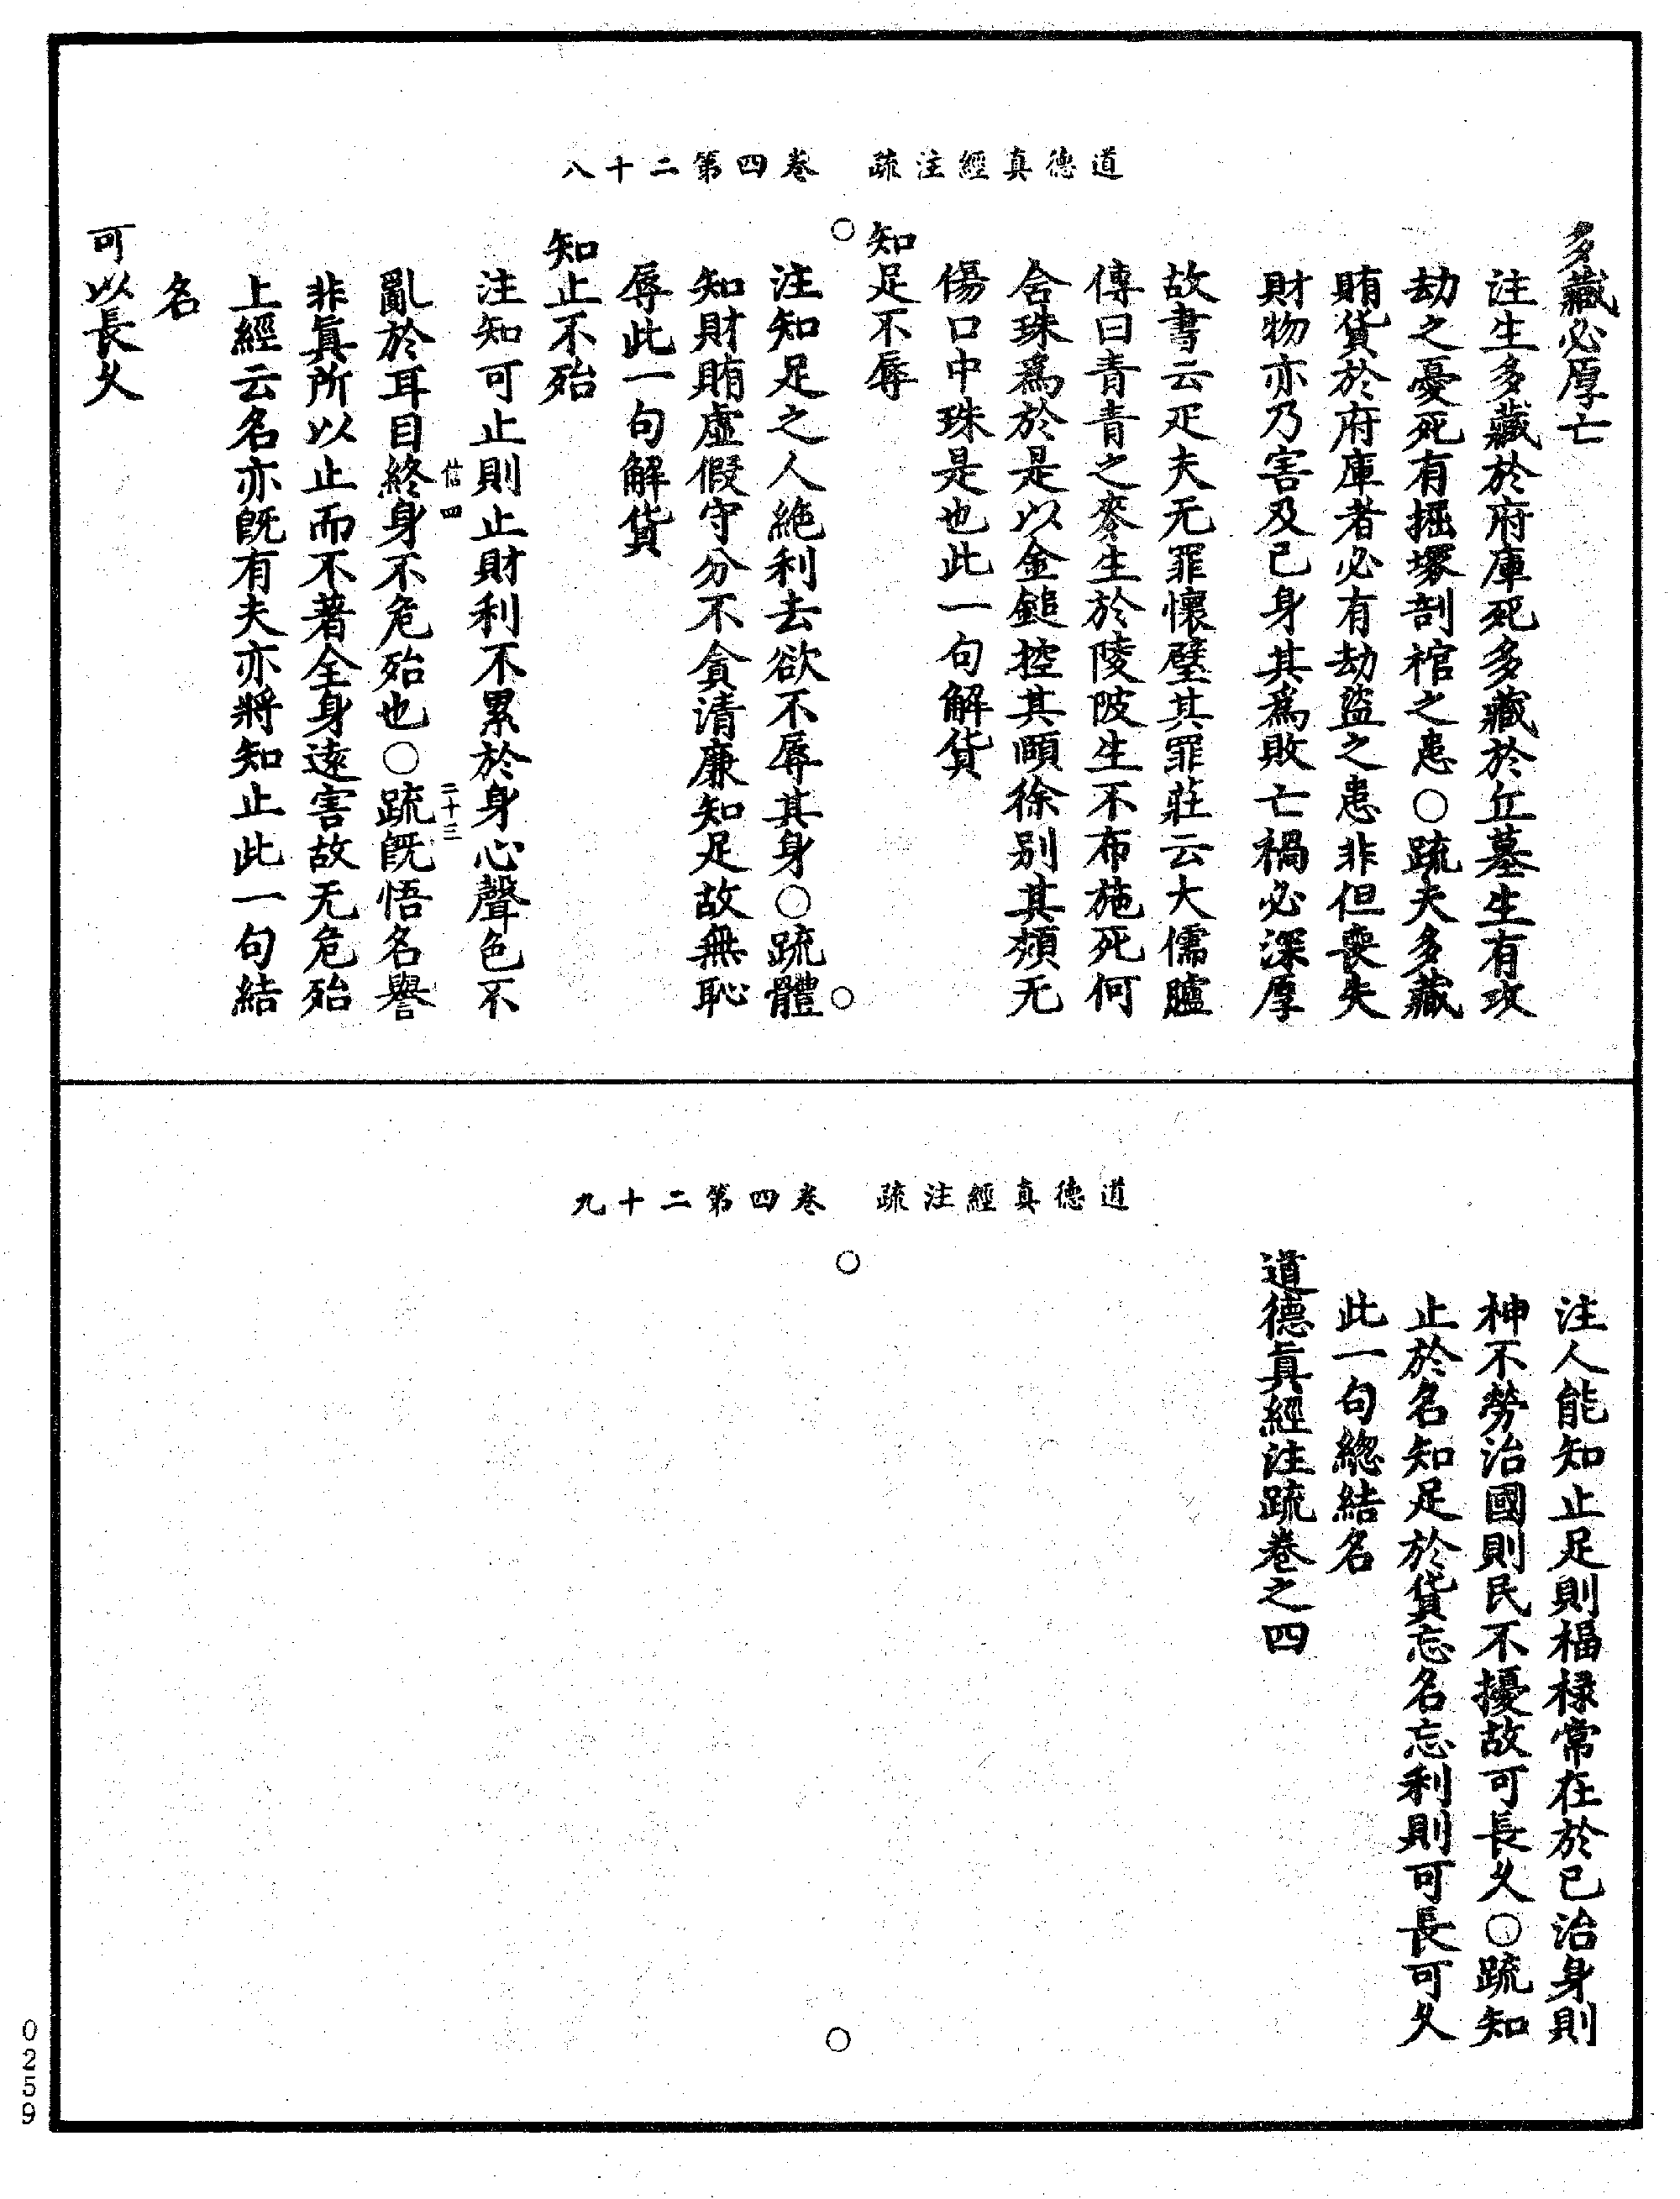 道德真經注疏　卷四第二十八
多藏必厚亡
注生多藏於府庫死多藏於丘墓生有攻
劫之憂死有掘塚剖棺之患○疏夫多藏
賄貨於府庫者必有劫盜之患非但喪失
財物亦乃害及已身其為敗亡禍必深厚
故書云疋夫无罪懷璧其罪莊云大儒臚
傳曰青青之麥生於陵陂生不布施死何
含珠為於是以金鎚控其頤徐別其頰无
傷口中珠是也此一句解貨
知足不辱
注知足之人絶利去欲不辱其身○疏體
知財賄虛假守分不貪清廉知足故無恥
辱此一句解貨
知止不殆
注知可止則止財利不累於身心聲色不
亂於耳目終身不危殆也○疏旣悟名譽
信四　二十三
非眞所以止而不著全身遠害故无危殆
上經云名亦旣有夫亦將知止此一句結
名
可以長久
道德真經注疏　卷四第二十九
注人能知止足則福祿常在於已治身則
神不勞治國則民不擾故可長久○疏知
止於名知足於貨忘名忘利則可長可久
此一句緫結名
道德眞經注疏卷之四
0259